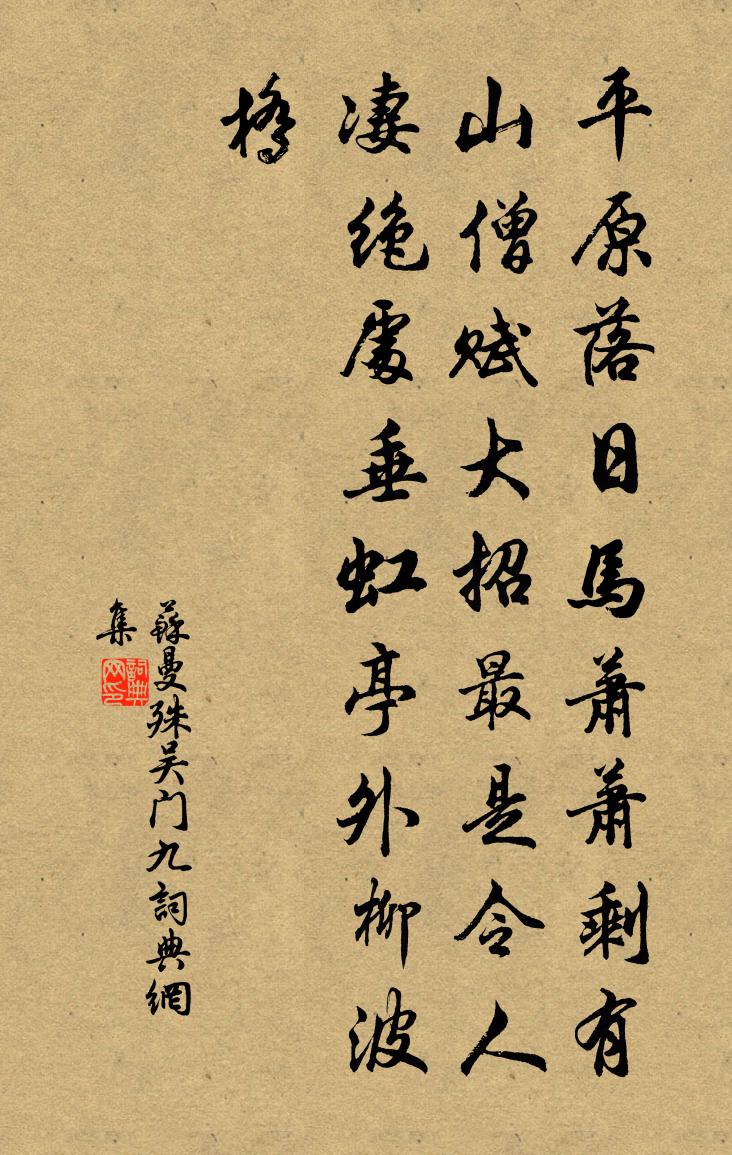 平原落日馬蕭蕭剩有
山僧賦大招最是令人
凄絶處垂虹亭外柳波
橋
蘇曼殊吴门九詞典網
集
詞典
网印